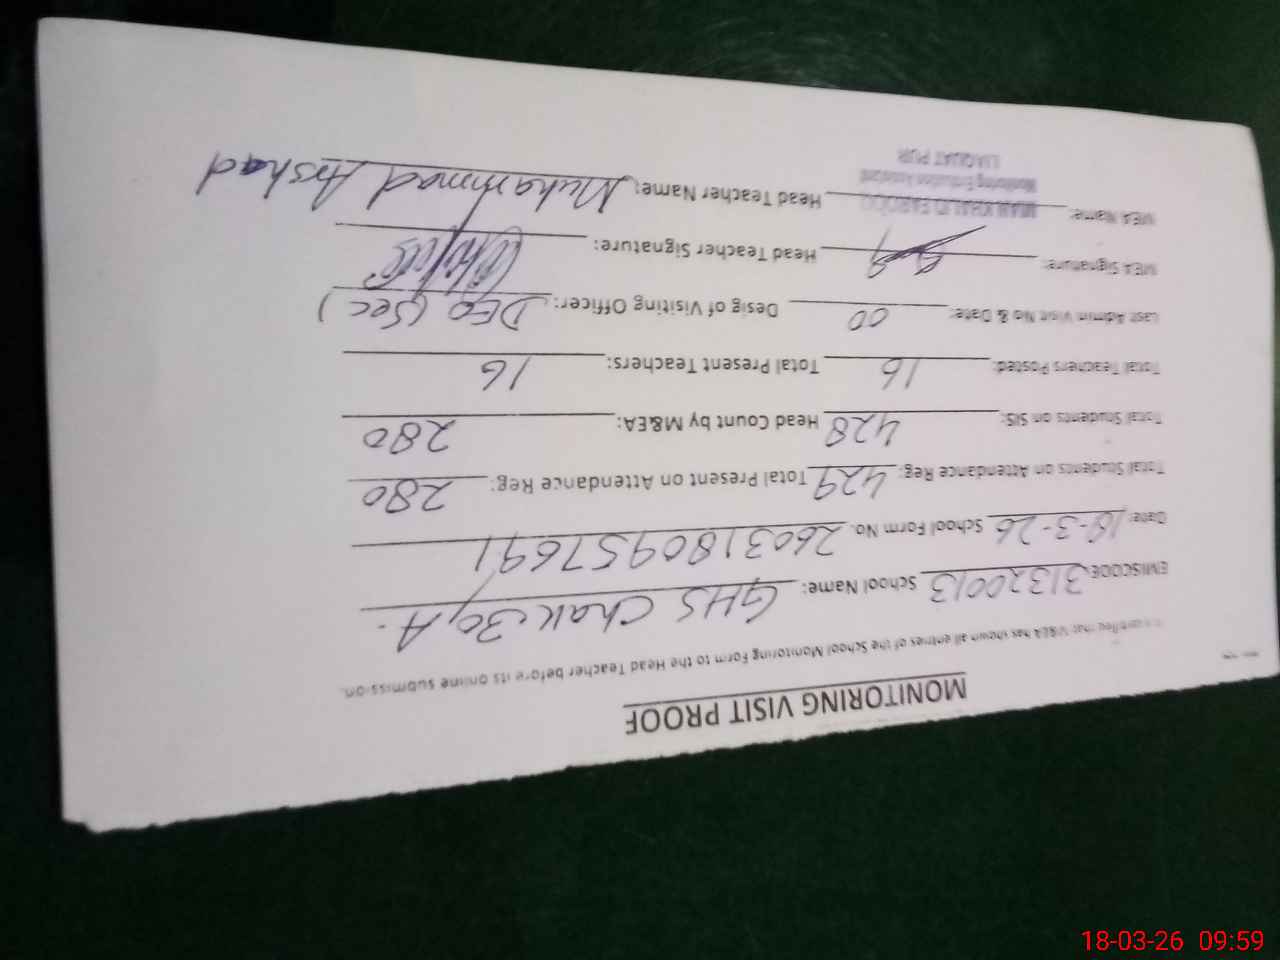 MONITORING VISIT PROOF
It is certified that M&EA has shown all entries of the School Monitoring Form to the Head Teacher before its online submission.
EMISCODE: 31320013 School Name: GHS Chak 30,A.
Date: 18-3-26 School Form No. 2603180957691
Total Students on Attendance Reg: 429 Total Present on Attendance Reg: 280
Total Students on SIS: 428 Head Count by M&EA: 280
Total Teachers Posted: 16 Total Present Teachers: 16
Last Admin Visit No & Date: 00 Desig of Visiting Officer: DEO (Sec)
MEA Signature: Head Teacher Signature:
MEA Name: MIAN KHALID FAROOQ Head Teacher Name: Muhammad Arshad
Monitoring Evaluation Assistant
LIAQUAT PUR
18-03-26 09:59